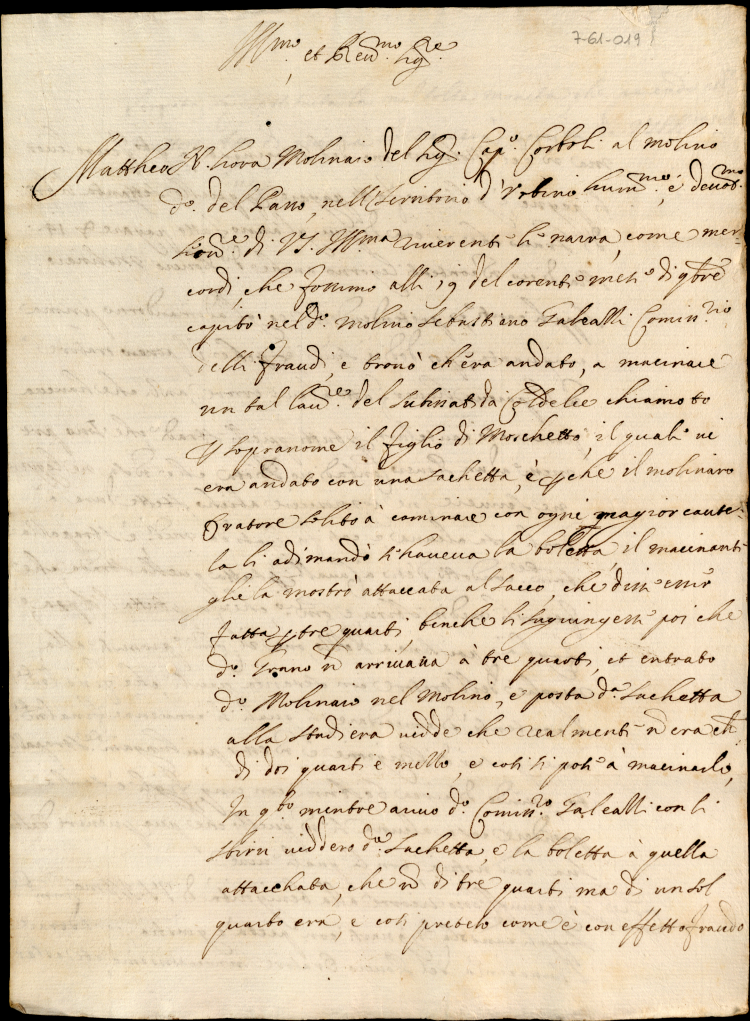 7-61-019
Ill.mo et R.eu.mo Sig.re
Mattheo N. hora Molinaio del Sig. Cap.o Corboli al molino
d.o del Passo, nell Territorio d'Urbino hum.mo, è deuot.mo
di V.S. Ill.ma riuerente li narra, come mer-
cordi, che fossimo alli 19 del corente mese di 9bre
capitò nel d.o molino Sebastiano Galealli Comiss.rio
delli fraudi, e trouò ch'era andato, a macinare
un tal lau.re del da chiamato
p sopranome il figlio di Moschetto, il quale ui
era andato con una sachetta, è perche il molinaro
Oratore solito à caminare con ogni magior caute-
la li adimandò s'haueua la boletta, il macinante
ghe la mostrò attaccata al sacco, che disse esser
fatta p tre quarti, benche li sugiungesse poi che
d.o Grano n arriuaua à tre quarti, et entrato
d.o Molinaio nel Molino, e posta d.a sachetta
alla stadiera uidde che realmente n era ch
di doi quarti e mezzo, e così si pose à macinarlo,
In q.to mentre arriuò d.o Comiss.rio Galealli con li
sbirri uiddero d.a sachetta, e la boletta à quella
attacchata, che n di tre quarti ma di un sol
quarto era, e così preteso come è con effetto fraudo